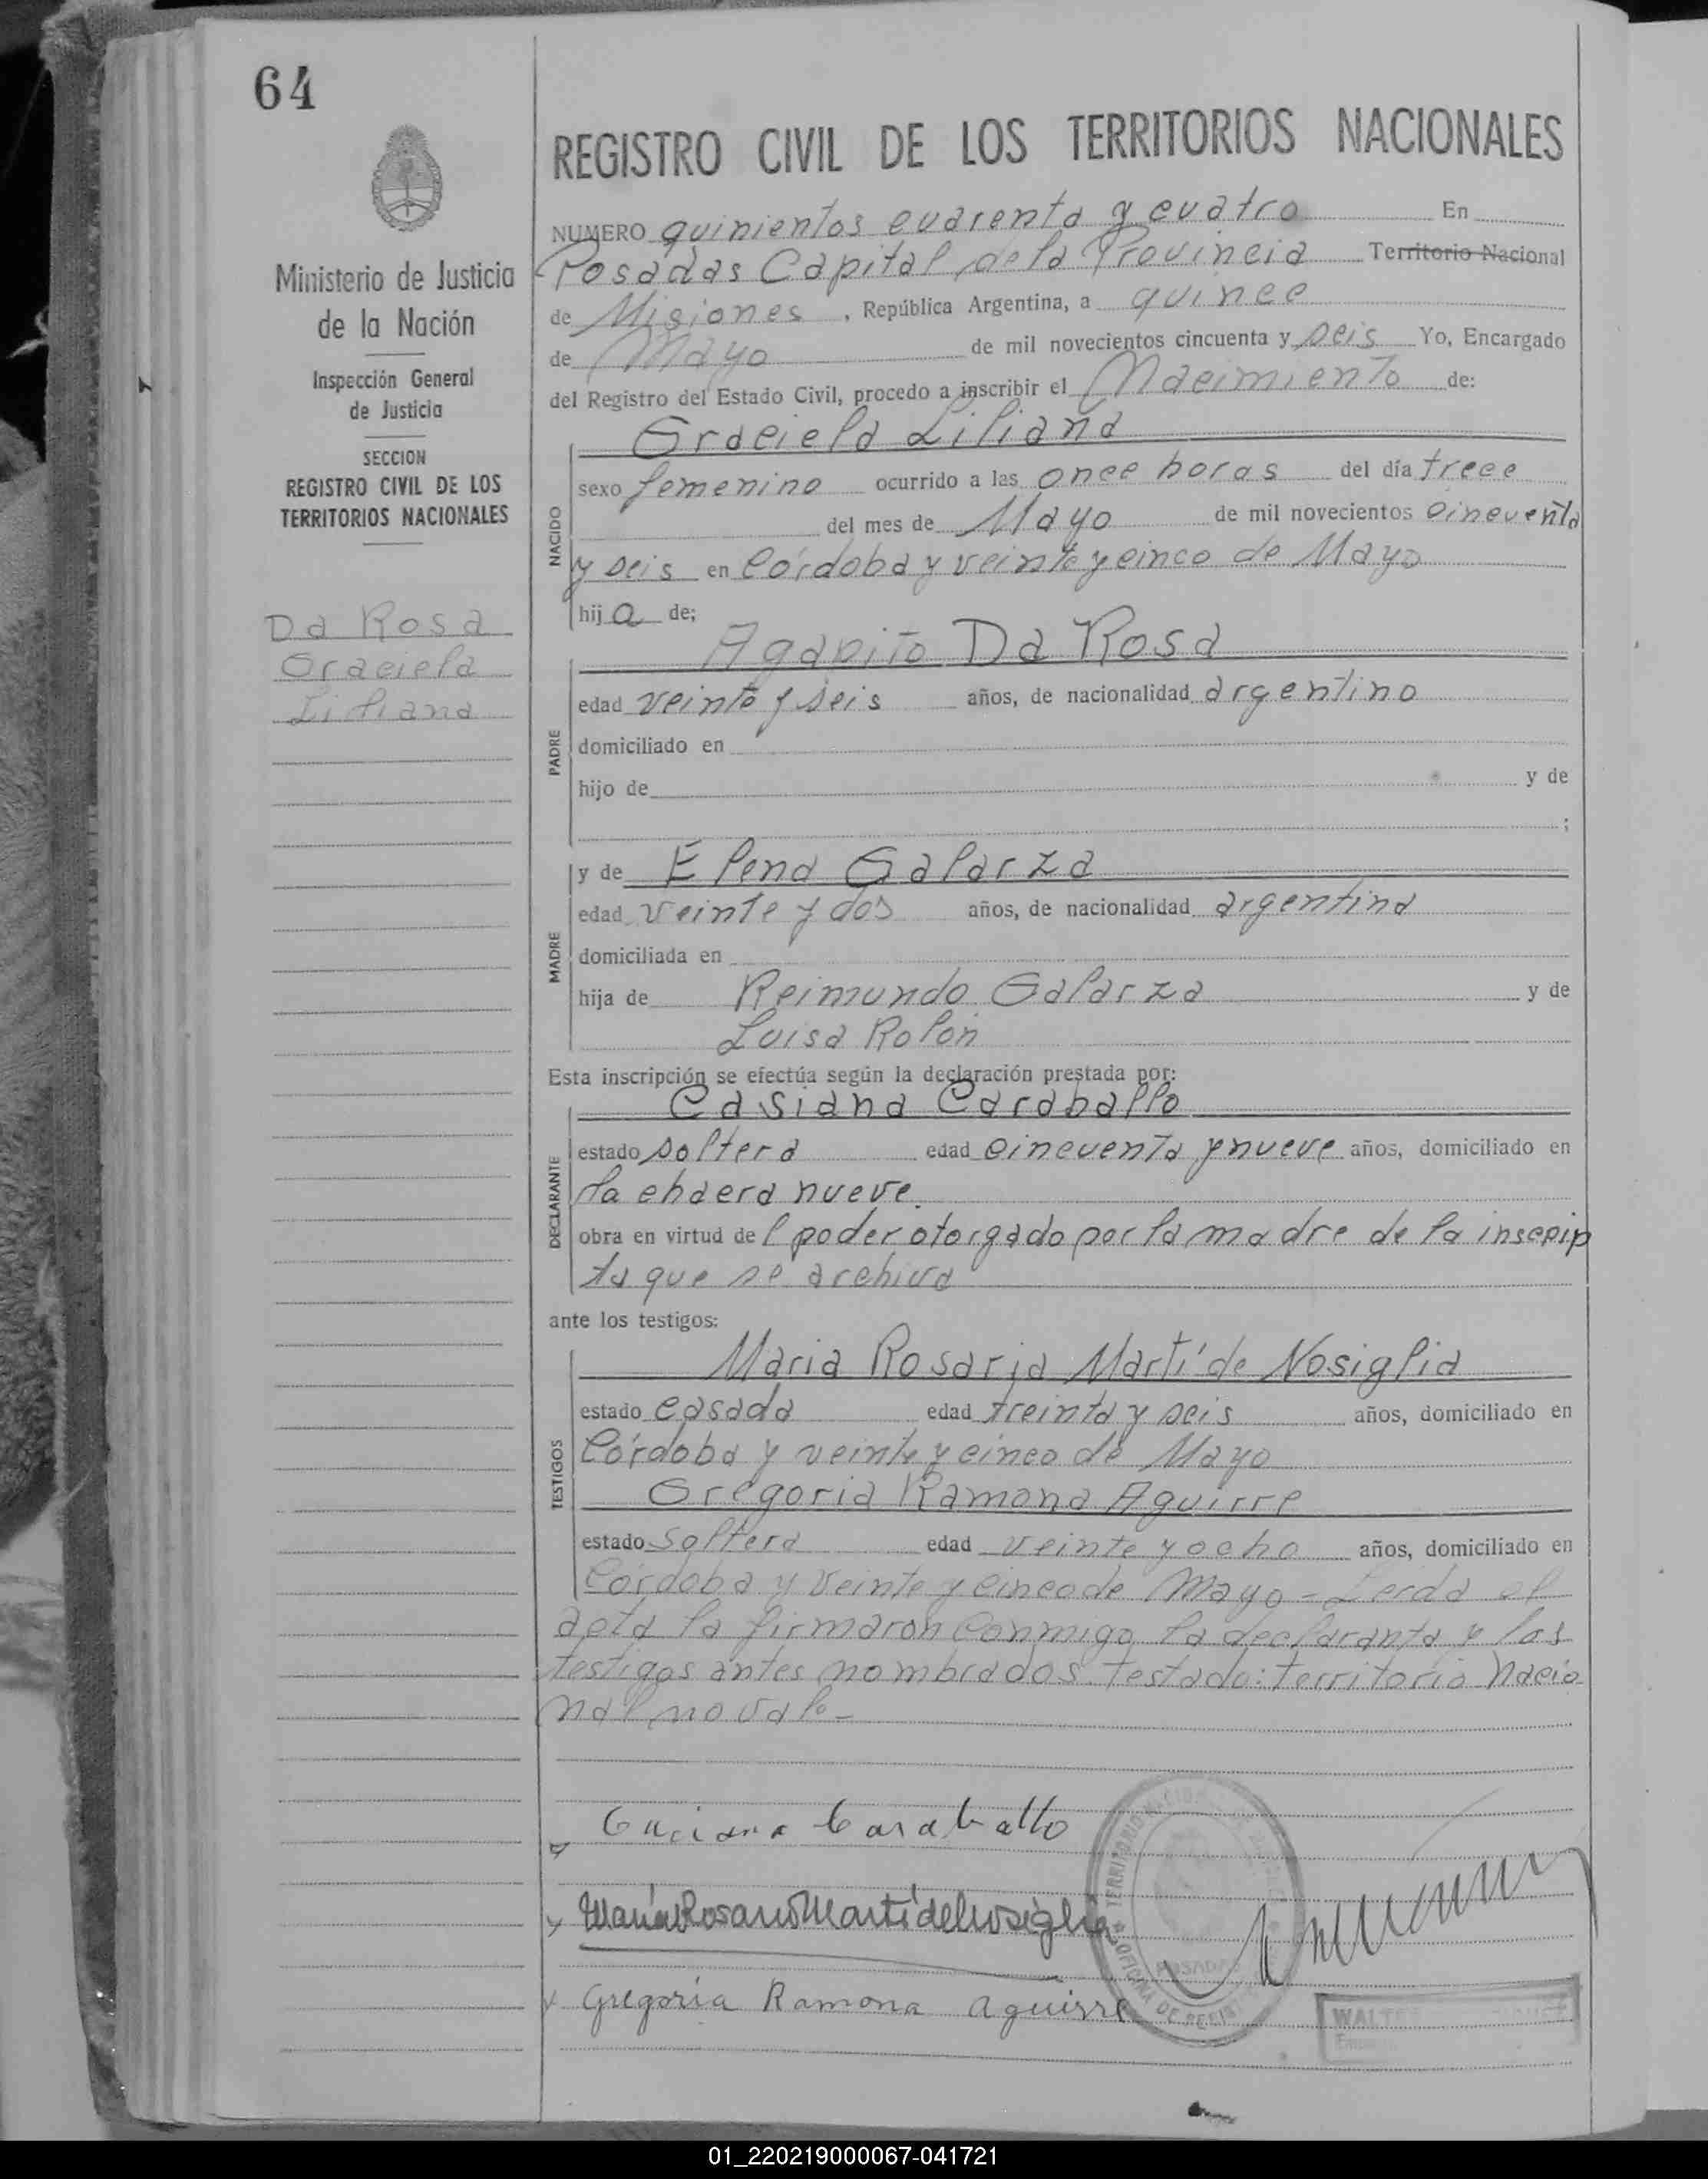 64
REGISTRO CIVIL DE LOS TERRITORIOS NACIONALES
Ministerio de Justicia
de la Nación
Inspección General
de Justicia
SECCION
REGISTRO CIVIL DE LOS
TERRITORIOS NACIONALES
Da Rosa
Graciela
Liliana
NUMERO quinientos cuarenta y cuatro En
Posadas Capital de la Provincia Territorio Nacional
de Misiones, República Argentina, a quince
de Mayo de mil novecientos cincuenta y seis Yo, Encargado
del Registro del Estado Civil, procedo a inscribir el Nacimiento de:
Graciela Liliana
NACIDO
sexo femenino ocurrido a las once horas del día trece
del mes de Mayo de mil novecientos cincuenta
y seis en Córdoba y veinte y cinco de Mayo
hija de;
Agapito Da Rosa
PADRE
edad veinte y seis años, de nacionalidad argentino
domiciliado en
hijo de y de
;
y de Elena Galarza
MADRE
edad veinte y dos años, de nacionalidad argentina
domiciliada en
hija de Reimundo Galarza y de
Luisa Rolón
Esta inscripción se efectúa según la declaración prestada por:
Casiana Caraballo
DECLARANTE
estado soltera edad cincuenta y nueve años, domiciliado en
la chacra nueve.
obra en virtud del poder otorgado por la madre de la inscrip
ta que se archiva
ante los testigos:
Maria Rosario Martí de Nosiglia
TESTIGOS
estado casada edad treinta y seis años, domiciliado en
Córdoba y veinte y cinco de Mayo
Gregoria Ramona Aguirre
estado soltera edad veinte y ocho años, domiciliado en
Córdoba y veinte y cinco de Mayo - Leida el
acta la firmaron conmigo la declaranta y los
testigos antes nombrados. Testado: territorio nacio
nal no vale -
Casiana Caraballo
María Rosario Martí de Nosiglia
Gregoria Ramona Aguirre
TERRITORIO
POSADAS
OFICINA DE REGIS
WALTE
01_220219000067-041721